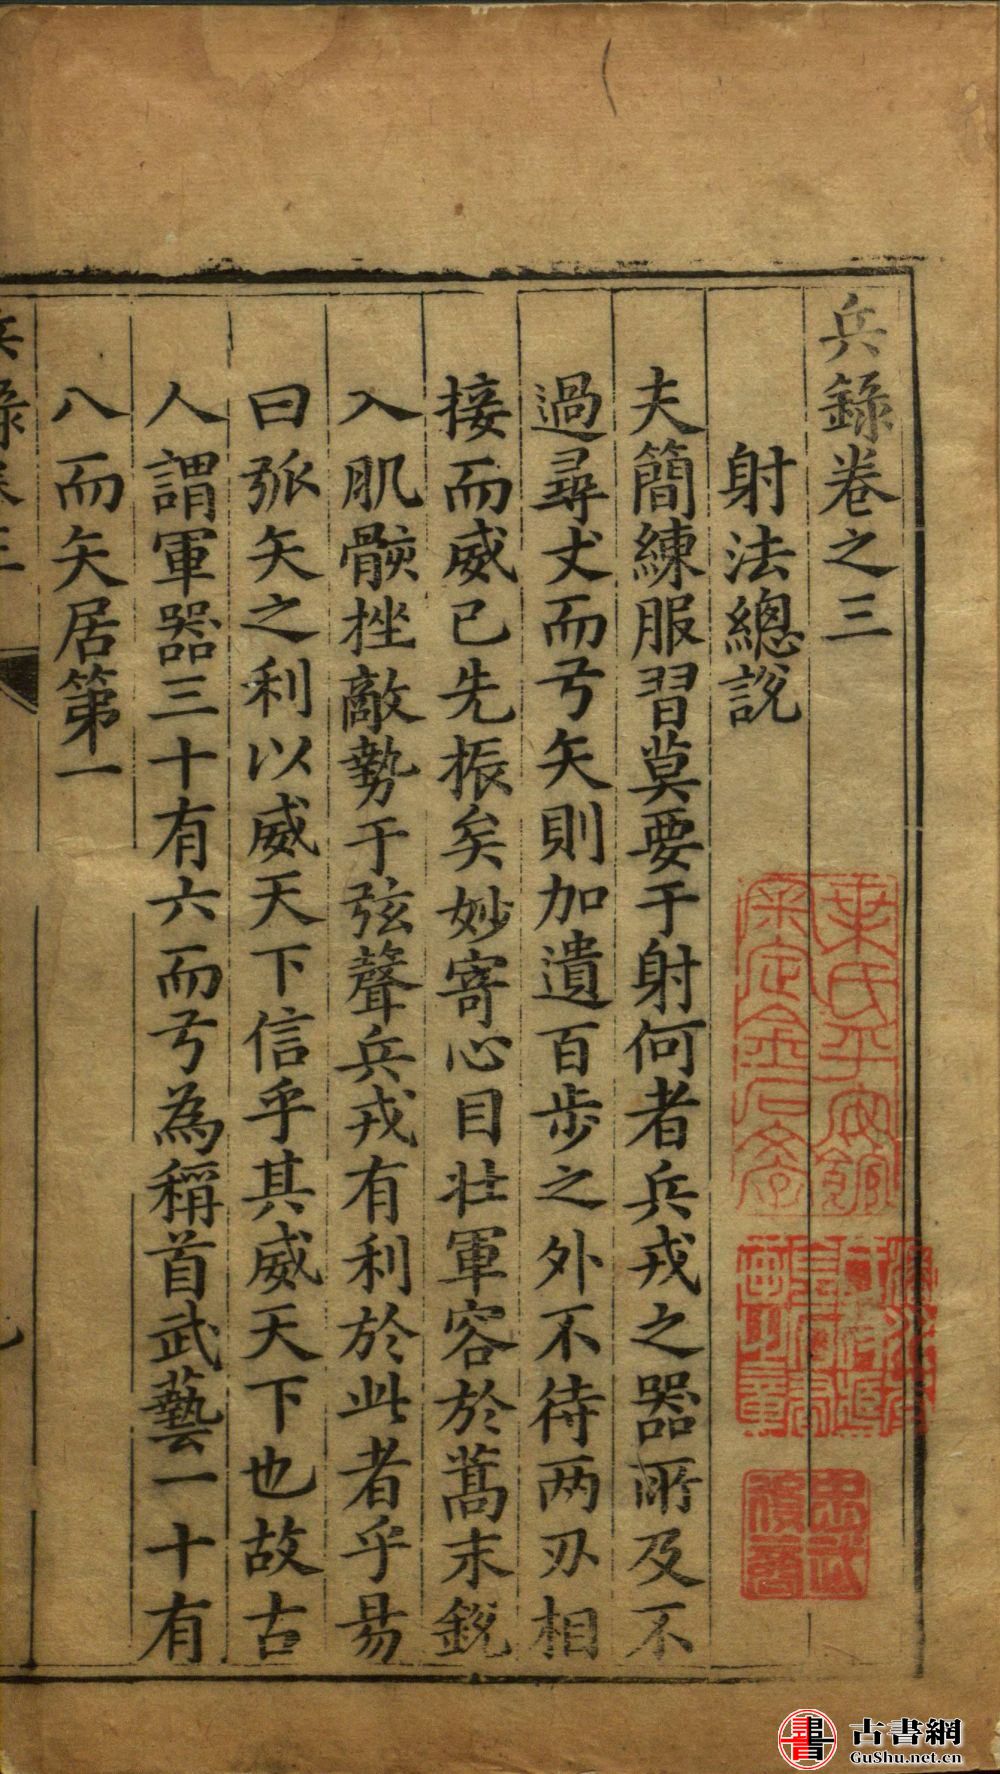 兵錄卷之三
射法總說
夫簡練服習莫要于射何者兵戎之器所及不
過尋丈而弓矢則加遺百步之外不待两刃相
接而威已先振矣妙寄心目壯軍容於蒿末銳
入肌骸挫敵勢于弦聲兵戎有利於此者乎易
曰弧矢之利以威天下信乎其威天下也故古
人謂軍器三十有六而弓為稱首武藝一十有
八而矢居第一
葉氏平安館
審定金石書
忠武
後裔
古書網
GuShu.net.cn